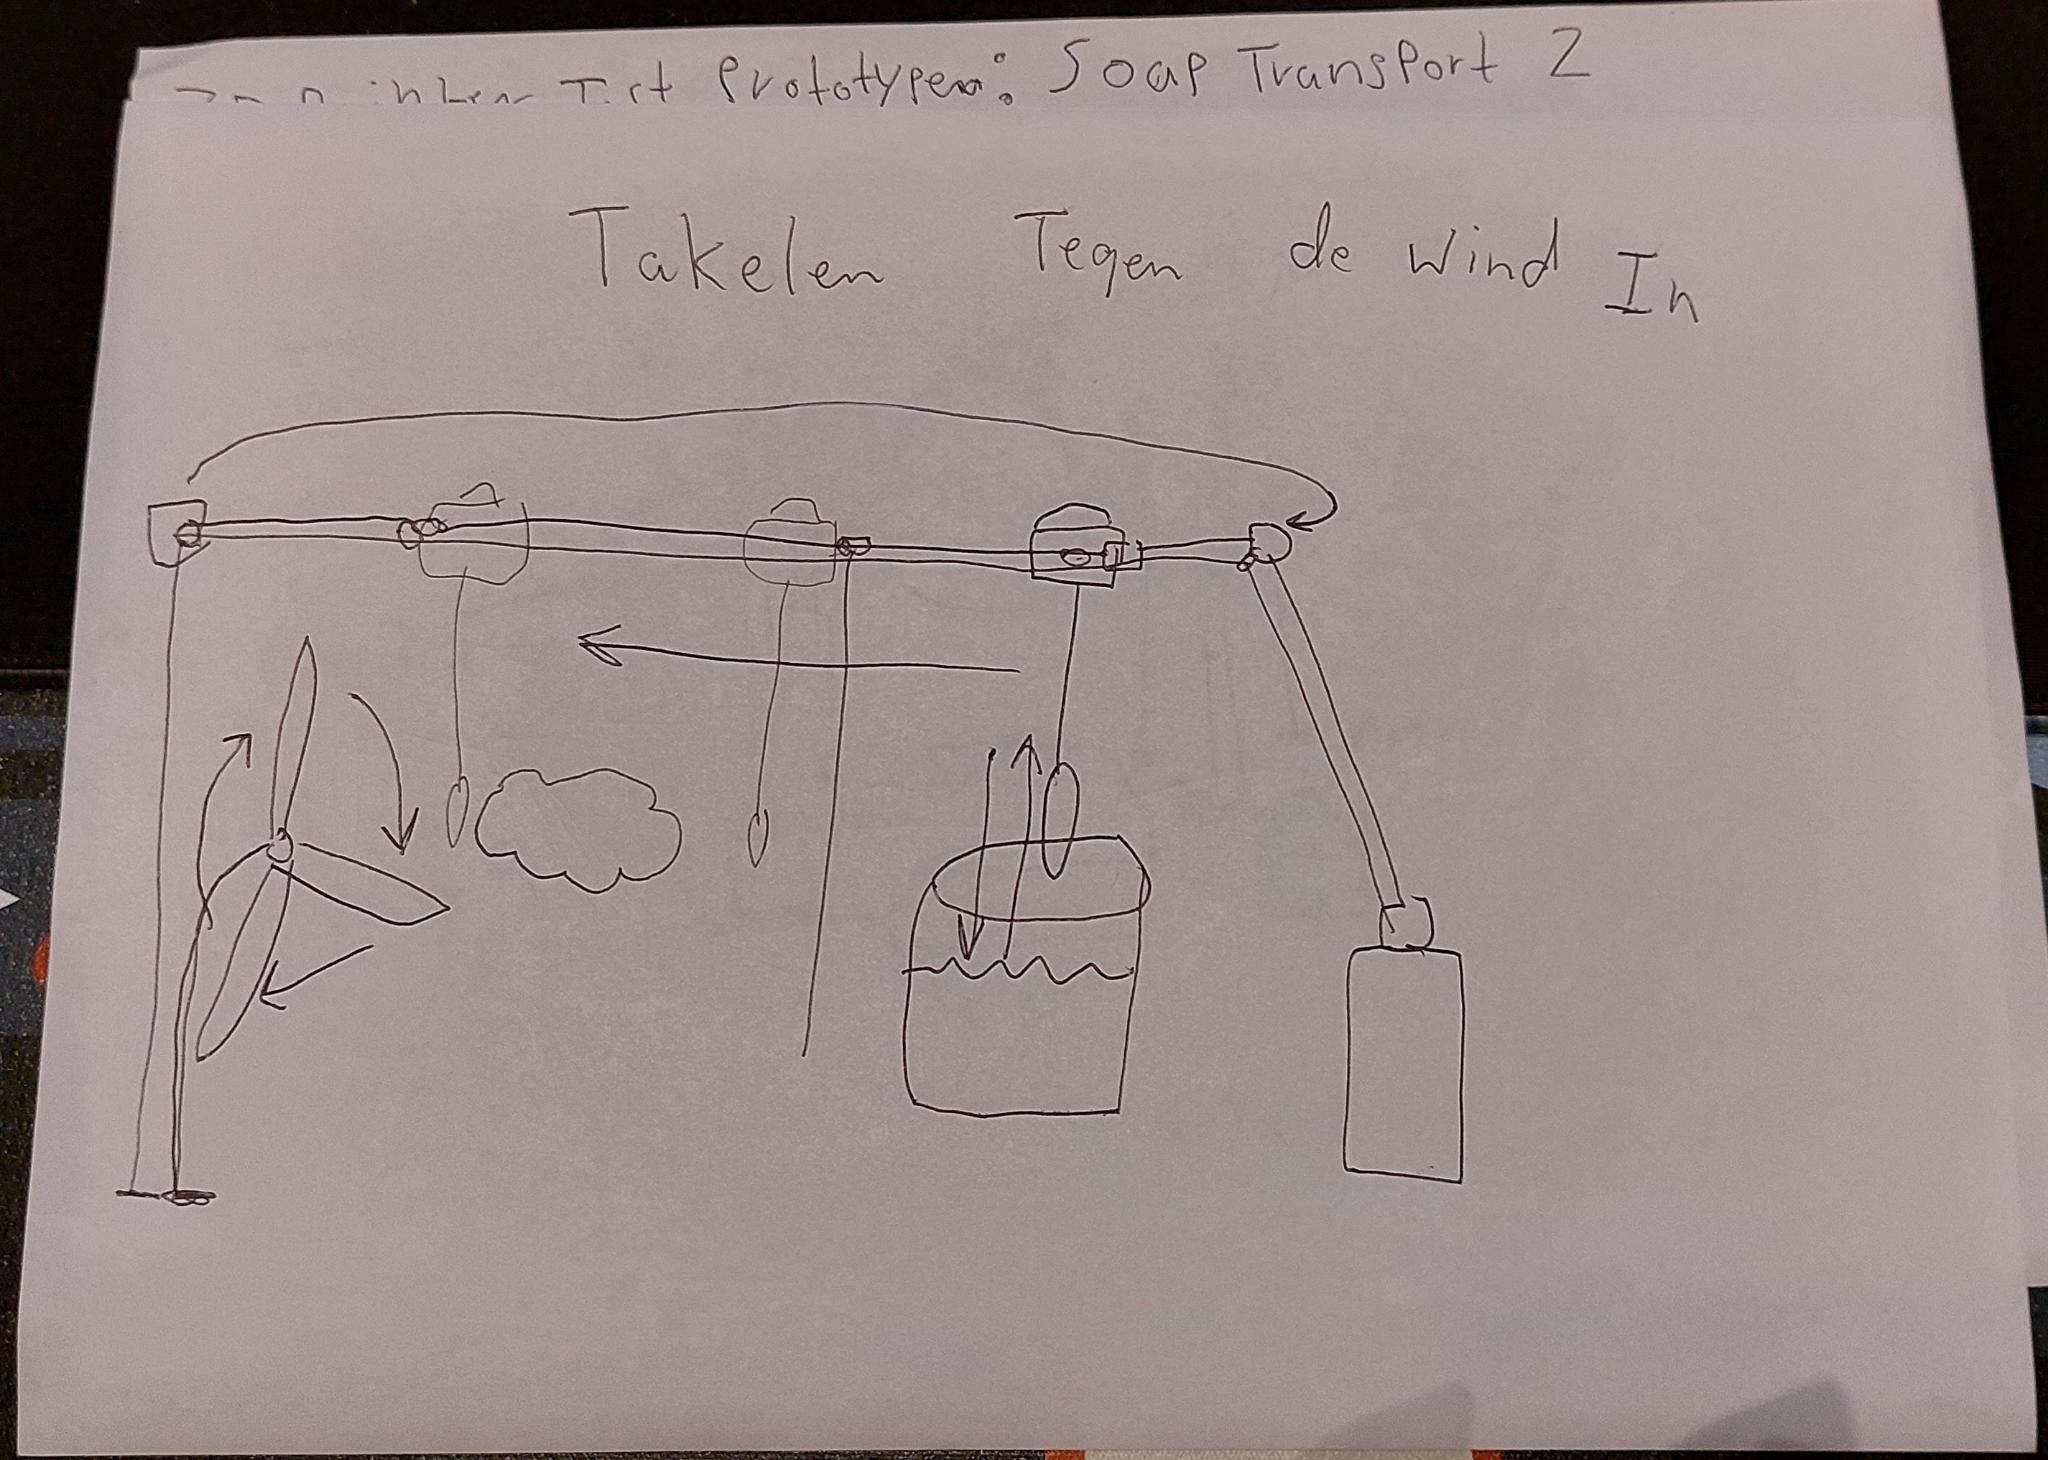 Prototypen: Soap Transport 2
Takelen Tegen de Wind In